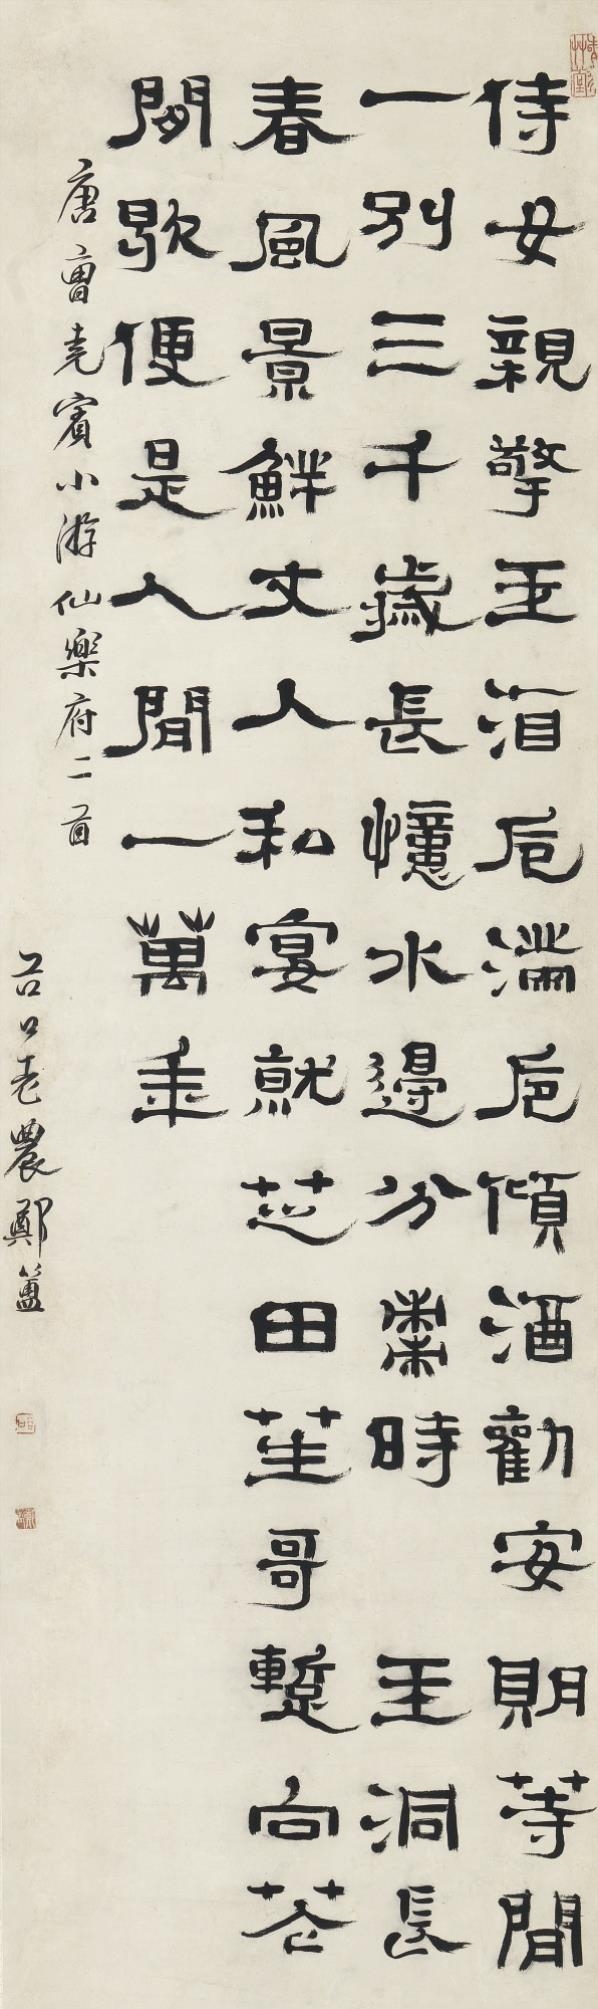 侍女親擎玉酒卮滿卮傾酒勸安期等閒
一別三千歲長憶水邊分棗時　玉洞長
春風景鮮丈人私宴就芝田笙哥暫向花
間歇便是人間一萬年
唐曹堯賓小游仙樂府二首
谷口老農鄭簠